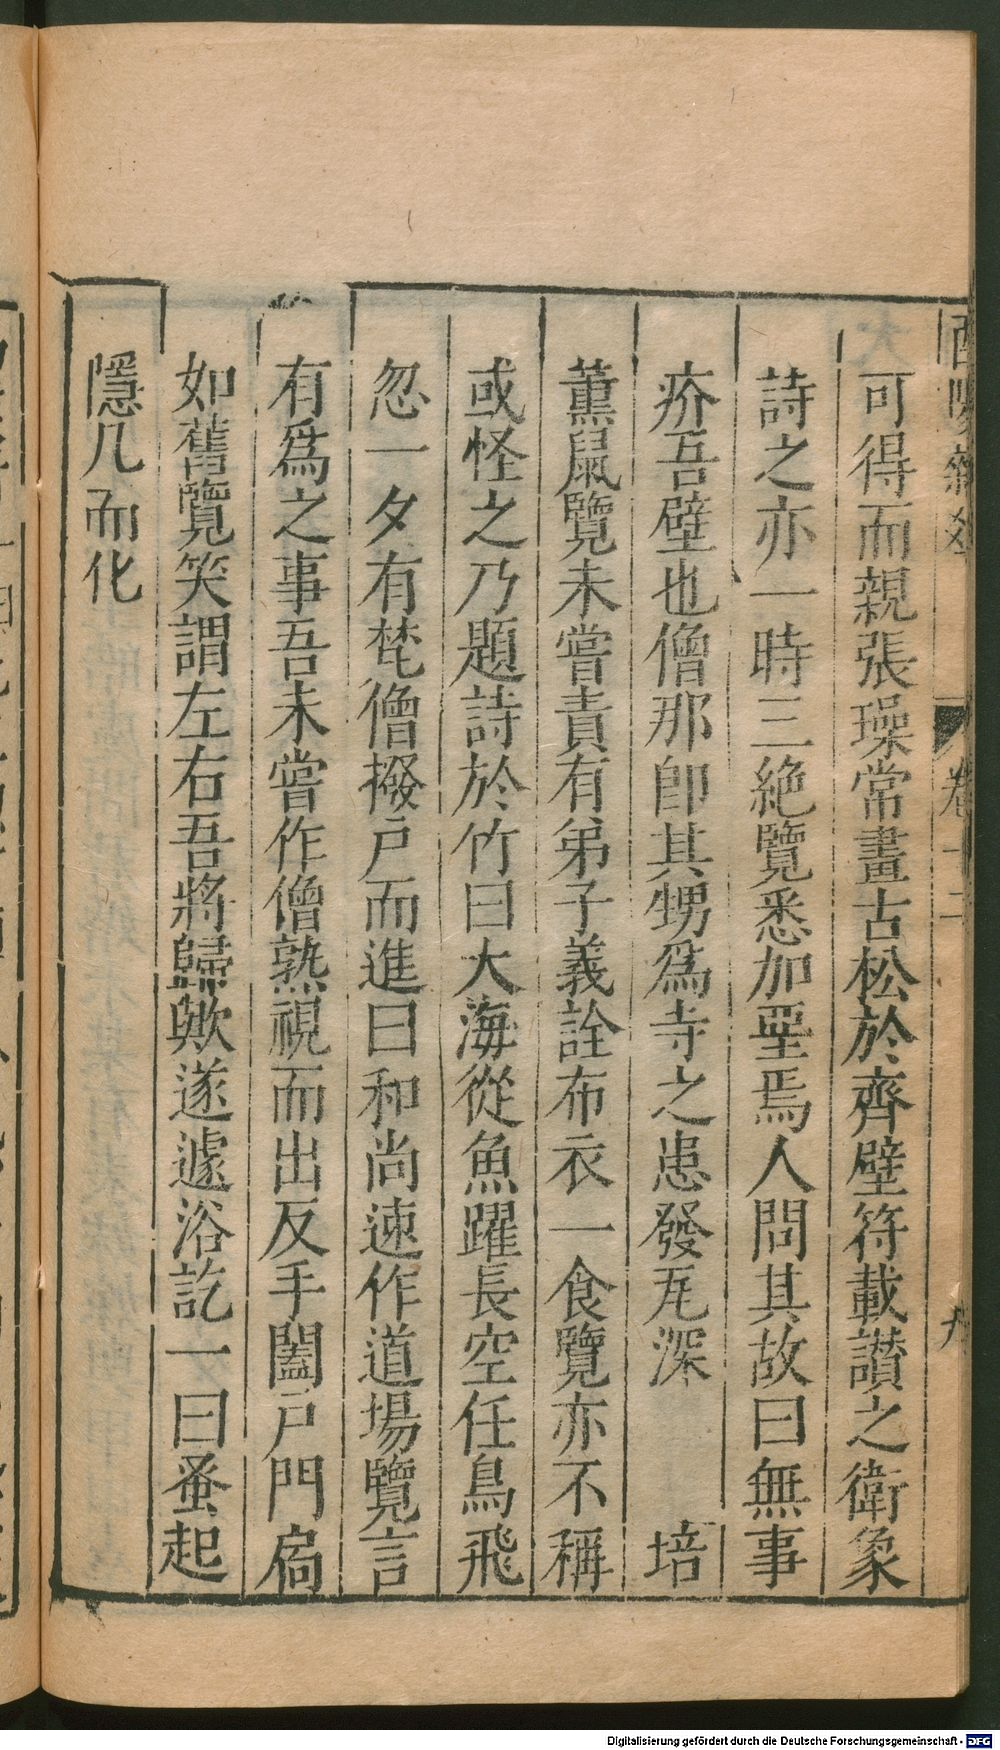 酉陽雜俎 卷十二
可得而親張璪常畫古松於齊壁符載讃之衛象
詩之亦一時三絶覽悉加堊焉人問其故曰無事
疥吾壁也僧那即其甥爲寺之患發瓦深 培
薫鼠覽未嘗責有弟子義詮布衣一食覽亦不稱
或怪之乃題詩於竹曰大海從魚躍長空任鳥飛
忽一夕有梵僧撥戸而進曰和尚速作道場覽言
有爲之事吾未嘗作僧熟視而出反手闔戸門扃
如舊覽笑謂左右吾將歸歟遂遽浴訖一曰蚤起
隱几而化
Digitalisierung gefördert durch die Deutsche Forschungsgemeinschaft - DFG